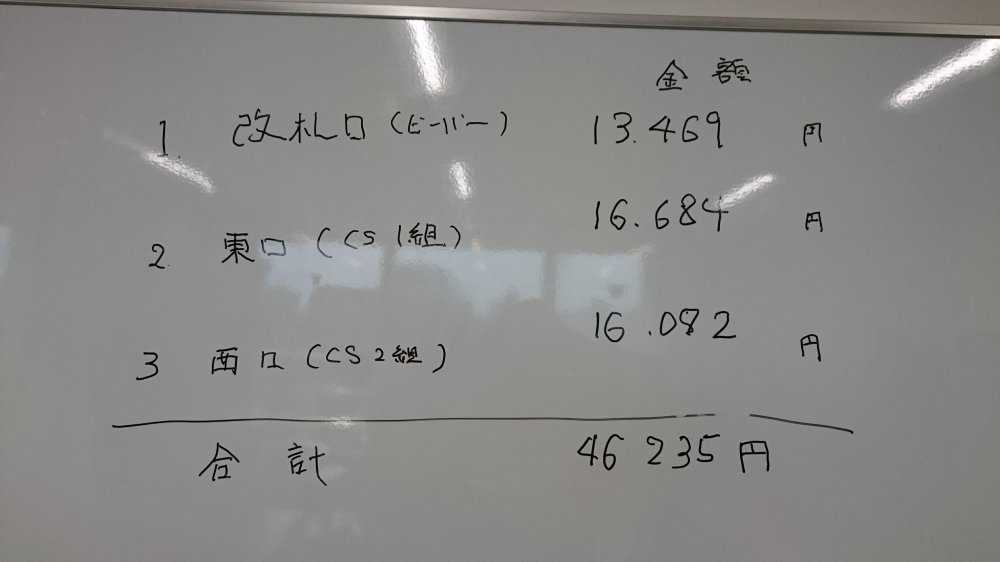 金額
1. 改札口(ビーバー) 13.469 円
2 東口(CS1組) 16.684 円
3 西口(CS2組) 16.082 円
合計 46 235円